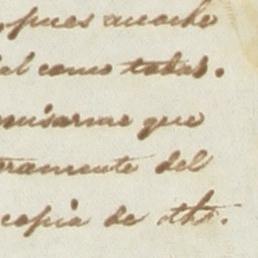 pues anoche
al como todas.
avisarme que
eramente del
copia de dho.